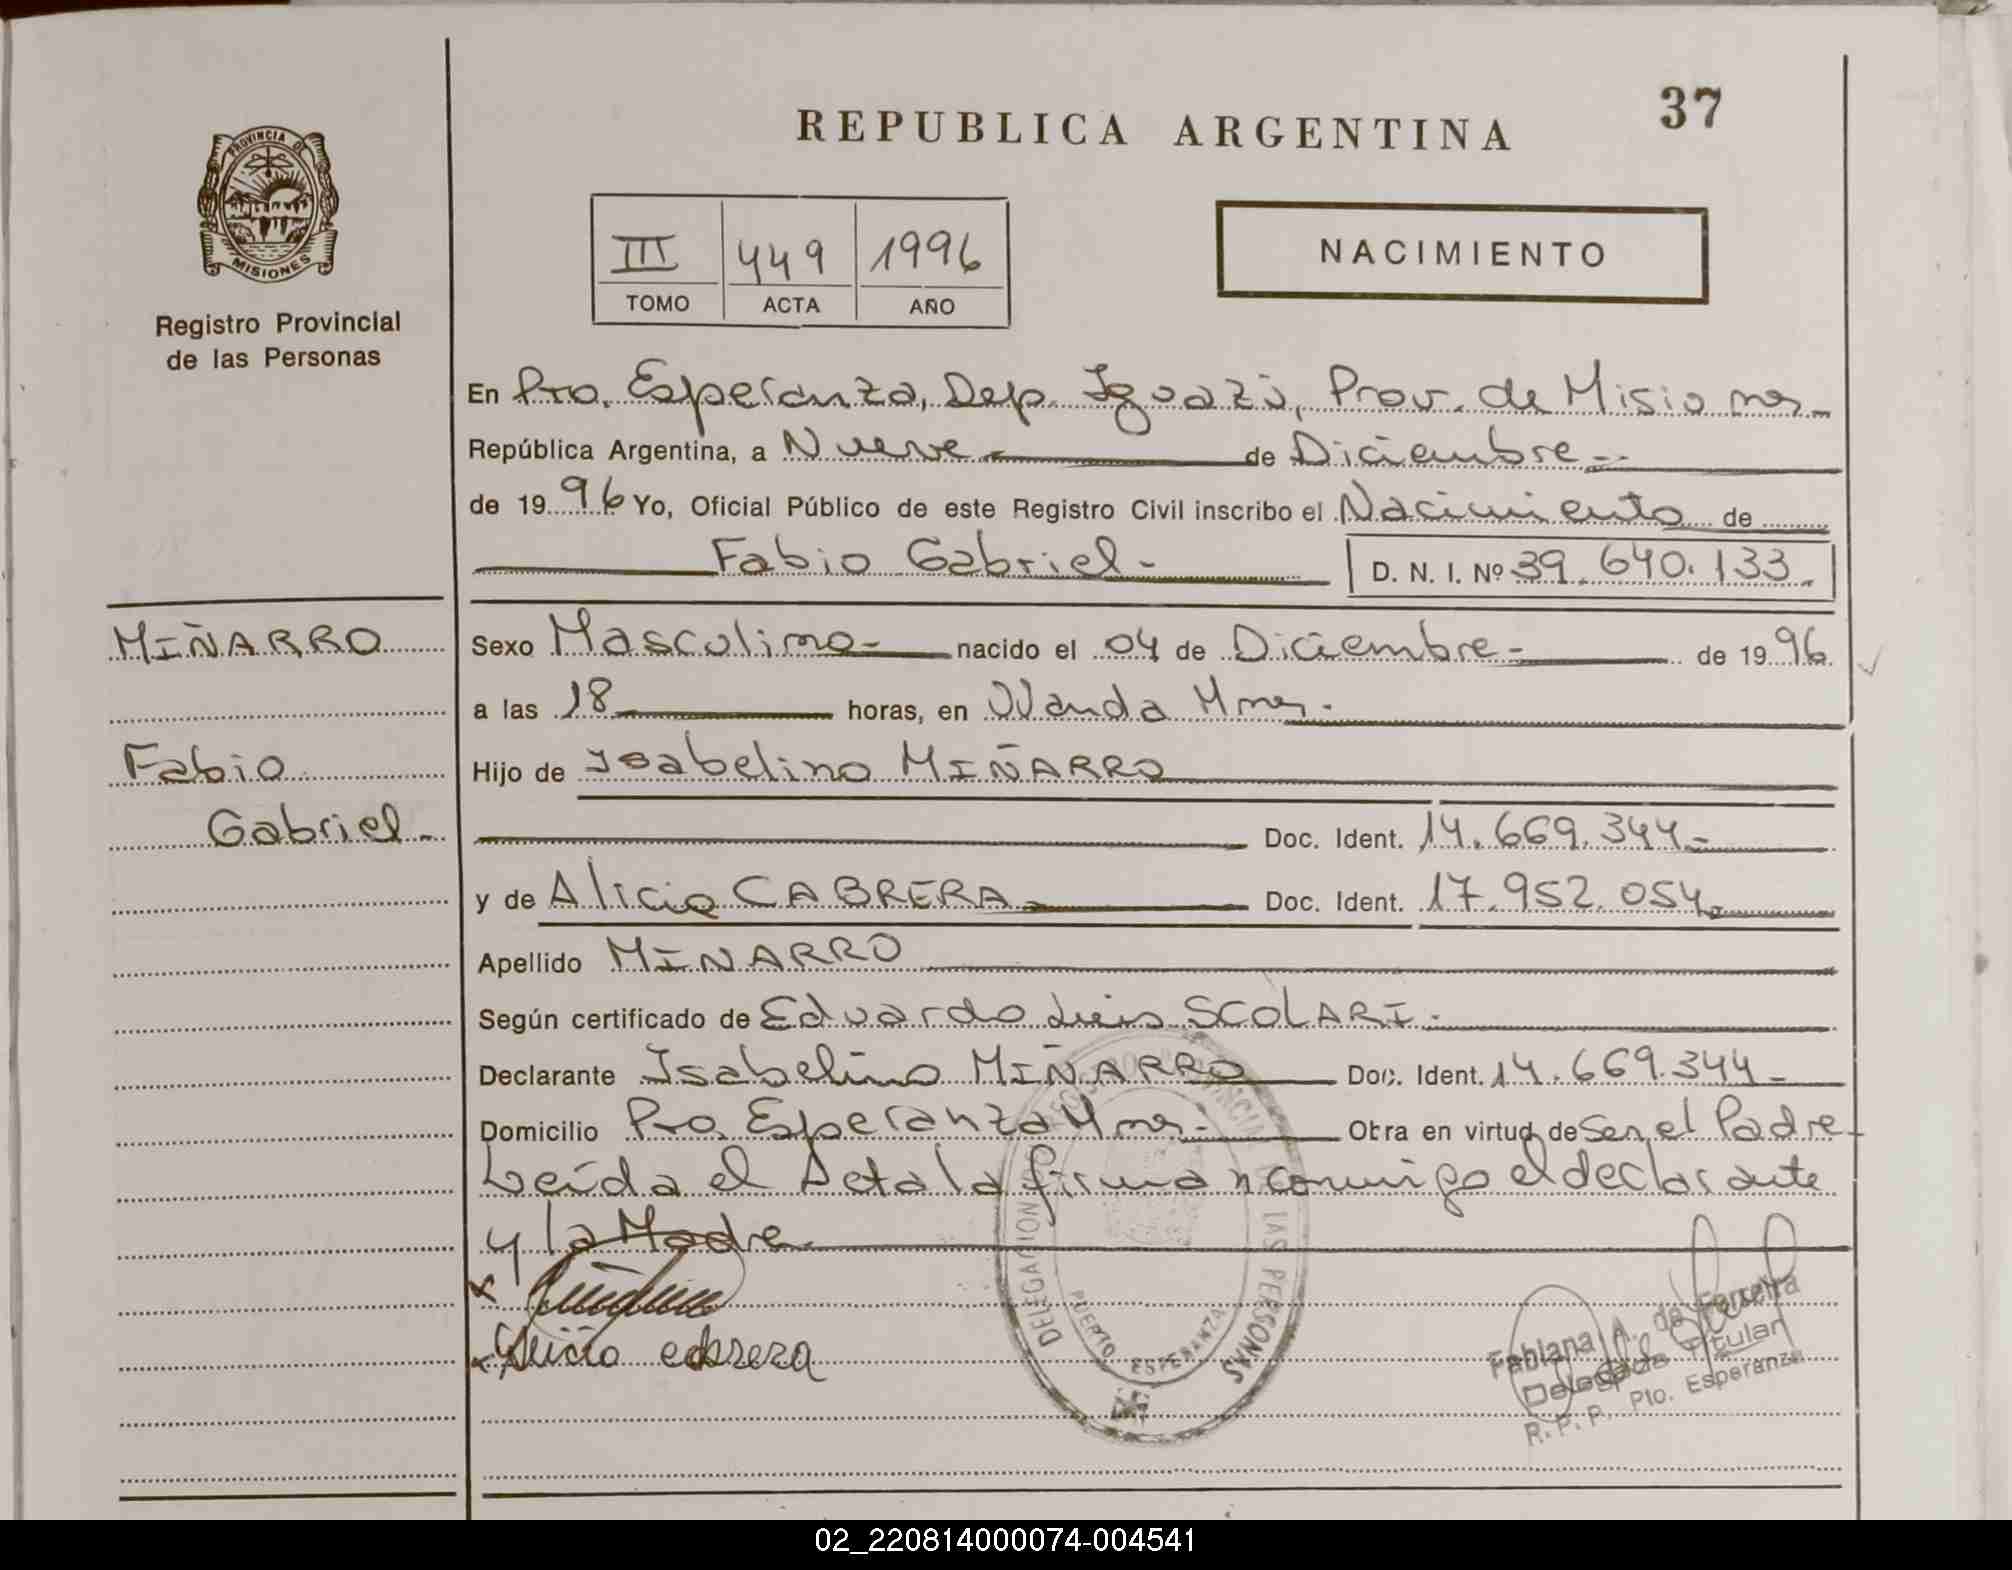 REPUBLICA ARGENTINA
37
PROVINCIA DE
MISIONES
Registro Provincial
de las Personas
III 449 1996
TOMO ACTA AÑO
NACIMIENTO
En Pto. Esperanza, Dep. Iguazú, Prov. de Misiones
República Argentina, a Nueve de Diciembre
de 1996 Yo, Oficial Público de este Registro Civil inscribo el Nacimiento de
Fabio Gabriel D. N. I. Nº 39.640.133
MIÑARRO
Sexo Masculino nacido el 04 de Diciembre de 1996
a las 18 horas, en Wanda Mnes.
Fabio
Hijo de Isabelino MIÑARRO
Gabriel
Doc. Ident. 14.669.344
y de Alicia CABRERA Doc. Ident. 17.952.054
Apellido MIÑARRO
Según certificado de Eduardo Luis SCOLARI
Declarante Isabelino MIÑARRO Doc. Ident. 14.669.344
Domicilio Pto. Esperanza Mnes. Obra en virtud de Ser el Padre
Leída el Acta la firman conmigo el declarante
y la Madre
Alicia cabrera
DELEGACION LAS PERSONAS
PUERTO ESPERANZA
Fabiana A. de Ferreira
Delegada Titular
R. P. P. Pto. Esperanza
02_220814000074-004541